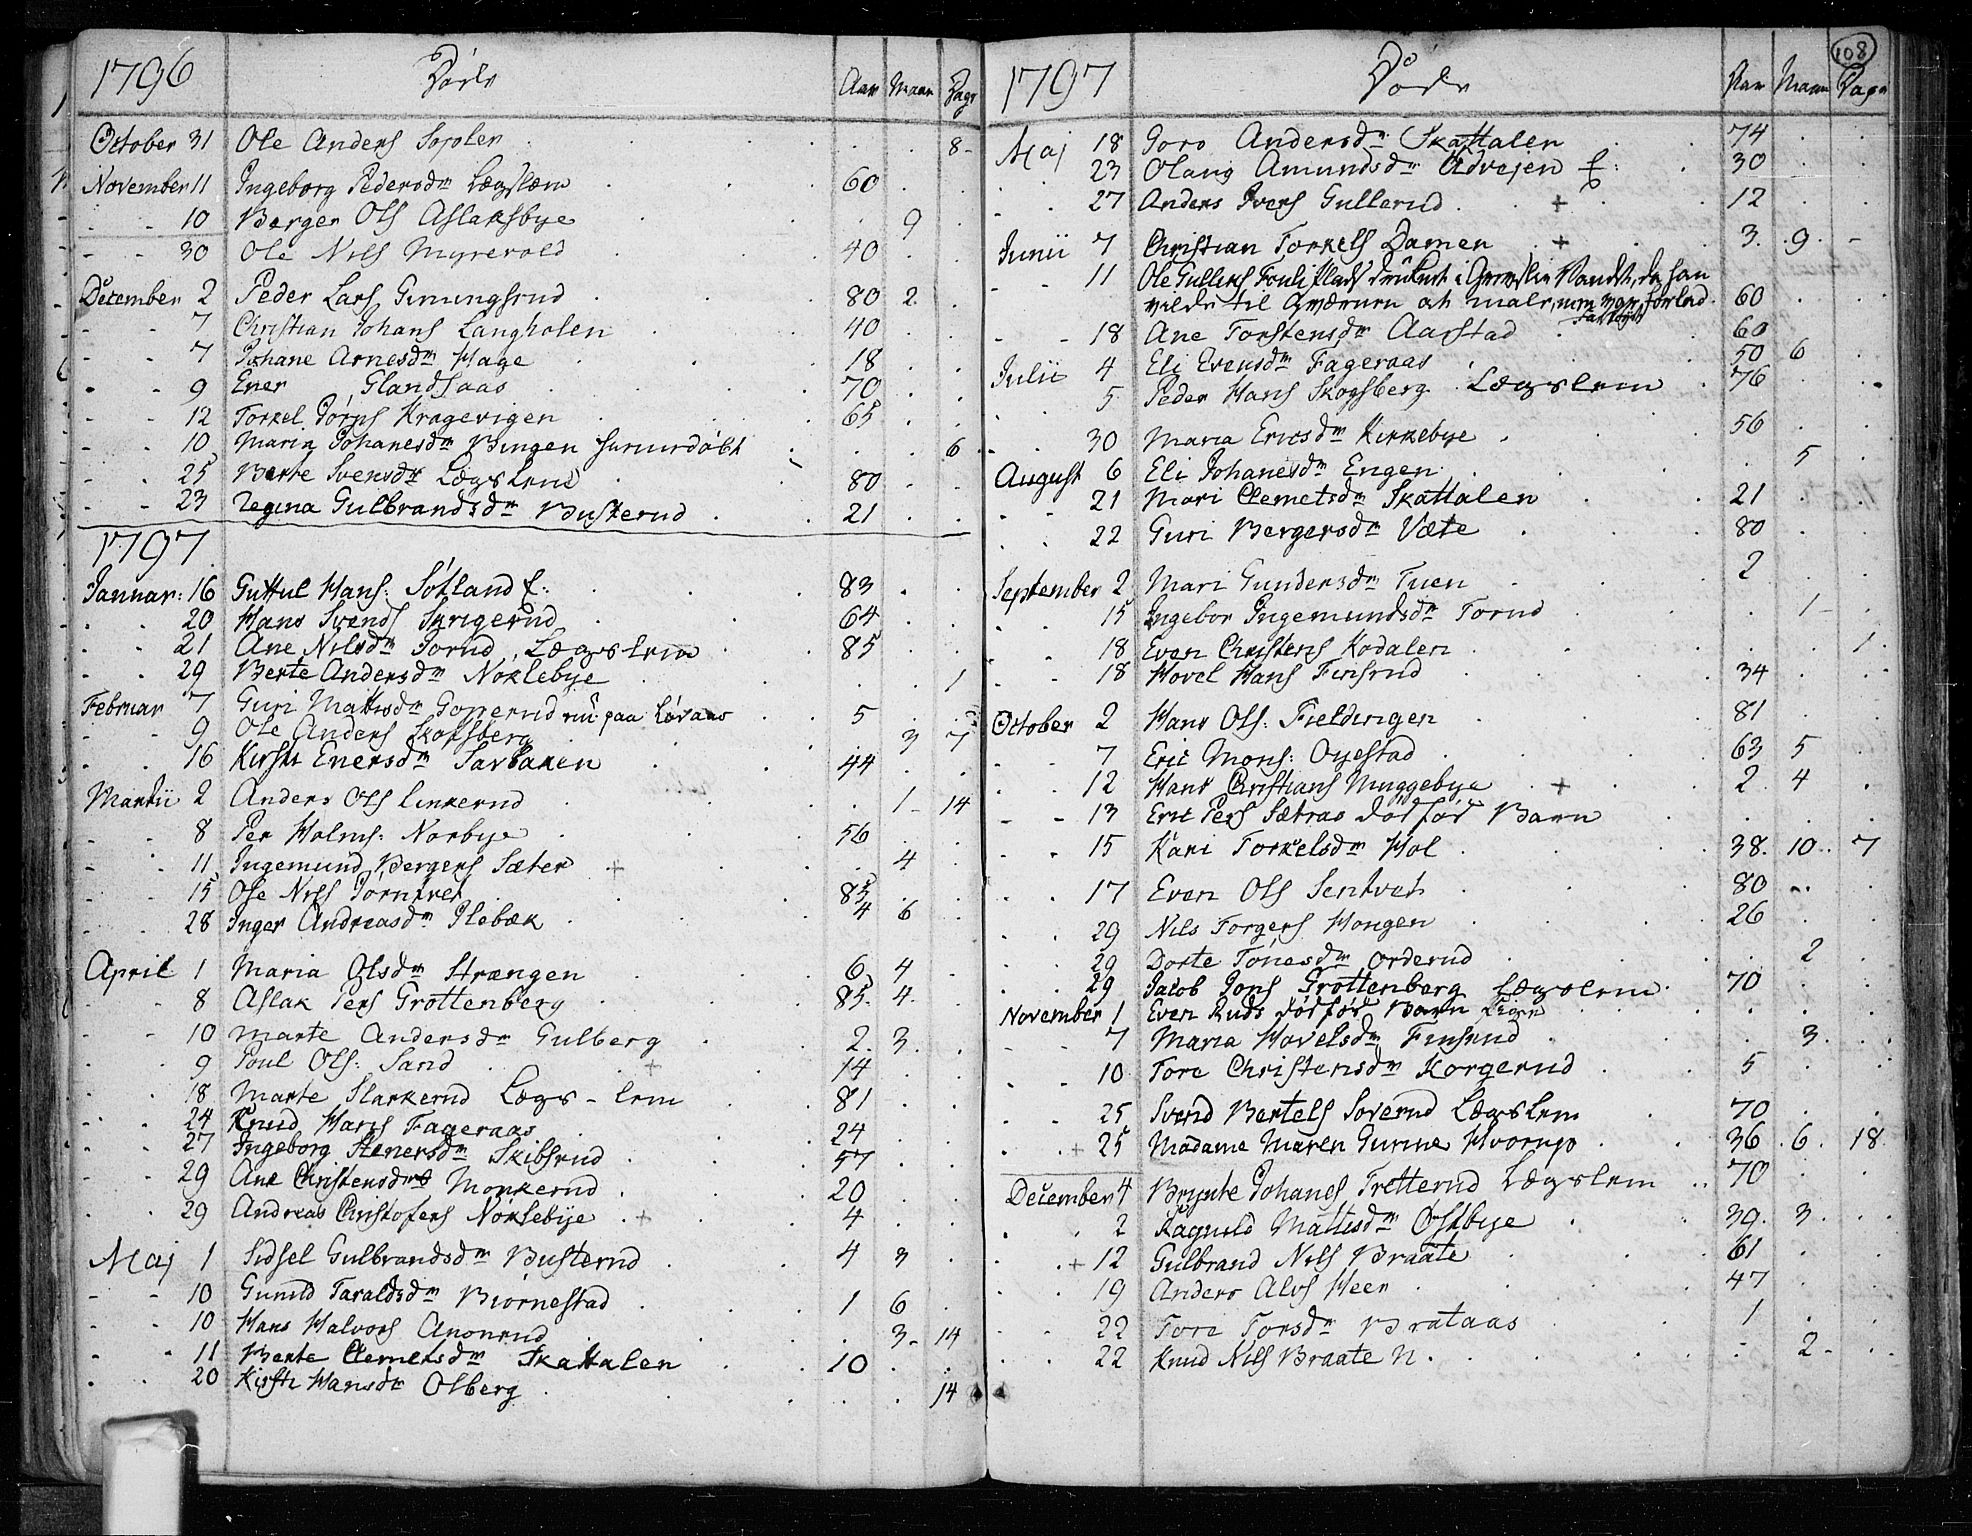 1796 Døde Aar Maan Dage
October 31 Ole Anders 8
November 11 Ingeborg Pedersdr Lægslem 60
10 Berger Ols Aslaksbye 9
30 Ole Nils Myrevold 40
December 2 Peder Lars Gunungsrud 80 2
7 Christian Johans Langholen 40
7 Johane Arnesdr Hage 18
9 Ener Glandsaas 70
12 Torkel Jørns Kragevigen 65
10 Maria Johanesdr Bingen 6
25 Berte Svensdr Lægslem 80
23 Regina Gulbrandsdr Busterud 21
1797
Januar: 16 Guttul Hans: Sotland f: 83
20 Hans Svends Skrigerud 64
21 Ane Nilsdr Torud, Lægslem 85
29 Berte Andersdr Noklebye 1
Februar 7 Guri Mattisdr Goperud nu paa Løvaas 5
9 Ole Anders Skoksberg 3 7
16 Kirsti Enersdr Sarbaken 44
Martii 2 Anders Ols Linkerud 1 14
8 Per Holms: Norbye 56
11 Ingemund Bergers Sæter + 4
15 Ose Nils 83
28 Inger Andreasdr Plebæk 4 6
April 1 Maria Olsdr Strængen 6 4
8 Aslak Pers Grottenberg 85 4
10 Marte Andersdr Gulberg 2 3
9 Poul Ols: Sand + 14
18 Marte Slarkerud Lægs-lem 81
24 Knud Hans Fageraas 24
27 Ingeborg Stenersdr Skibsrud 57
29 Ane Christensdr Monkerud 20
29 Andreas Christofers Noklebye + 4
Maj 1 Sidsel Gulbrandsdr Busterud 4 3
10 Gunild Taraldsdr Biornestad 1 6
10 Hans Halvors Anonrud 3 14
11 Berte Clemetsdr Skattalen 10
20 Kirsti Hansdr Olberg 14
108
1797 Døde Aar Maan Dage
Maj 18 Goro Andersdr Skattalen 74
23 Olaug Amundsdr Advejen f: 30
27 Anders Ivers Gullerud + 12
Junii 7 Christian Torkels Damen + 3 9
11 Ole Gullers Fouli Plads druknet i Vandet, da han
vilde til Qværnen at male, men 60
18 Ane Torstensdr Aarstad 60
Julii 4 Eli Evensdr Fageraas 50 6
5 Peder Hans Skogsberg Lægslem 76
30 Maria Ericsdr Kirkebye 56
August 6 Eli Johanesdr Engen 5
21 Mari Clemetsdr Skattalen 21
22 Guri Bergersdr Væte 80
September 2 Mari Gundersdr Tuen 2
15 Ingebor Ingemundsdr Torud 1
18 Even Christens Kodalen 1
18 Hovel Hans Finsrud 34
October 2 Hans Ols: Fieldvigen 81
7 Eric Mons: Oyestad 63 5
12 Hans Christians Muggebye + 2 4
13 Eric Pers Sætras dødfød Barn
15 Kari Torkelsdr Hol 38 10 7
17 Even Ols Sentvet 80
29 Nils Torgers Hongen 26
29 Dorte Tonesdr Orderud 2
29 Jacob Jons Grottenberg Lægslem 70
November 1 Even Ruds dødfød Barn
7 Maria Hovelsdr Finsrud 3
10 Tore Christensdr Korgerud 5
25 Svend Bertels Soverud Lægslem 70
+ 25 Madame Maren Gurine Hvorngo 36 6 18
December 4 Brynte Johanes Tretterud Lægslem 70
2 Ragnild Mattisdr Østbye 39 3
+ 12 Gulbrand Nils Braate 61
19 Anders Alvs Heer 47
22 Tore Torsdr Brataas 1
22 Knud Nils Braate N. 2